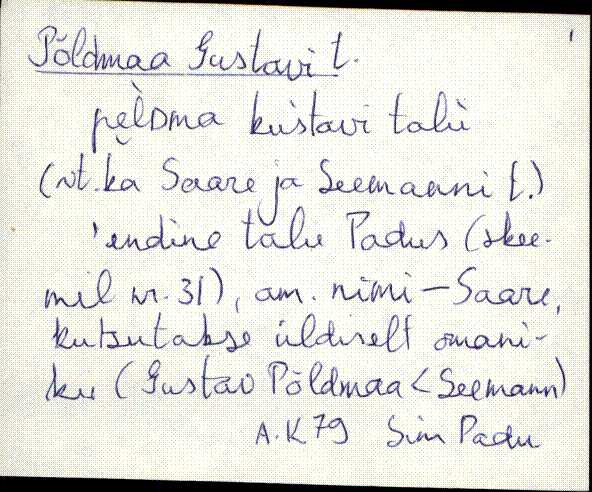 Põldmaa Gustavi t. 1
pe̬ lᴅma kustavi talu
(vt. ka Saare ja Seemanni t.)
'endine talu Padus (skee-
mil nr. 31), am. nimi – Saare,
kutsutakse üldiselt omani-
ku (Gustav Põldmaa < Seemann)
A.K 79 Sim Padu